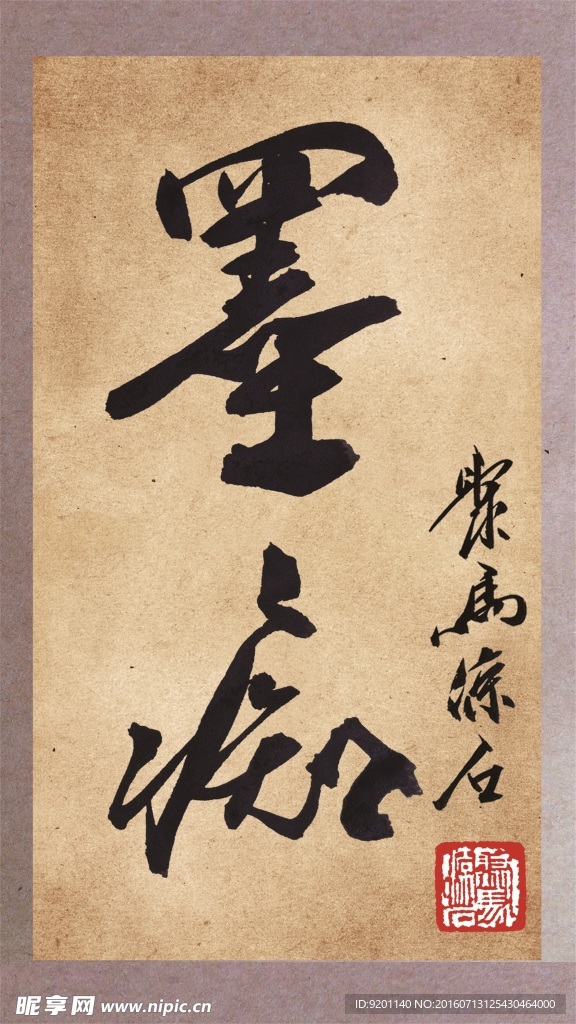 墨痴
聚馬涼石
昵享网 www.nipic.cn
ID:9201140 NO:20160713125430464000